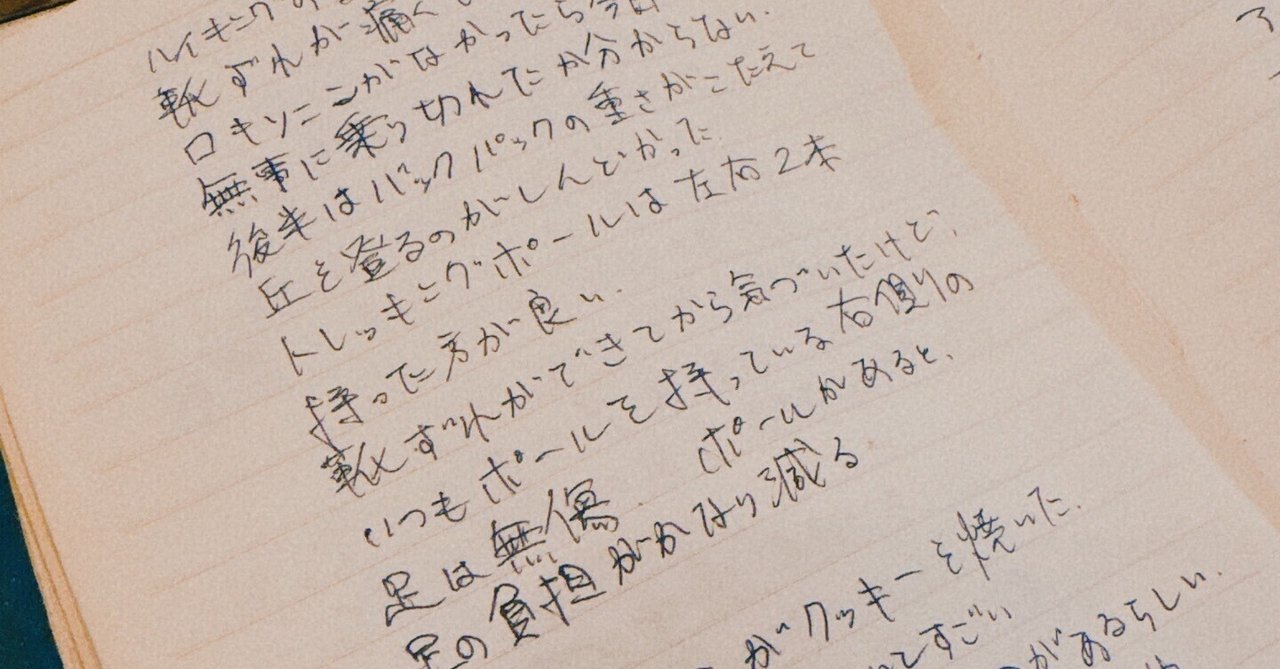 ハイキングの
靴ずれが痛く
ロキソニンがなかったら今日
無事に乗り切れたか分からない.
後半はバックパックの重さがこたえて
丘を登るのがしんどかった.
トレッキングポールは左右2本
持った方が良い.
靴ずれができてから気づいたけど,
いつもポールを持っている右側りの
足は無傷. ポールがあると,
足の負担がかなり減る
がクッキーを焼いた.
てすごい
があるらしい.